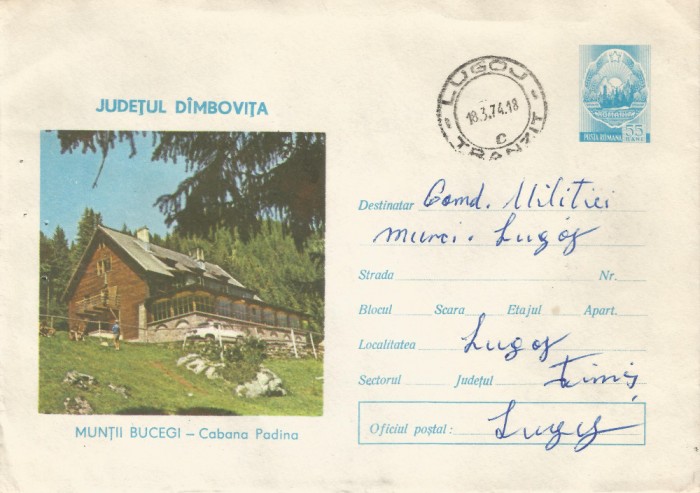 JUDEȚUL DÎMBOVIȚA
MUNȚII BUCEGI – Cabana Padina
LUGOJ
18.3.74.18
C
TRANZIT
ROMANIA
POSTA ROMANA 55 BANI
Destinatar Comd. Militiei
munci. Lugoj
Strada Nr.
Blocul Scara Etajul Apart.
Localitatea Lugoj
Sectorul Județul Timiș
Oficiul poștal: Lugoj